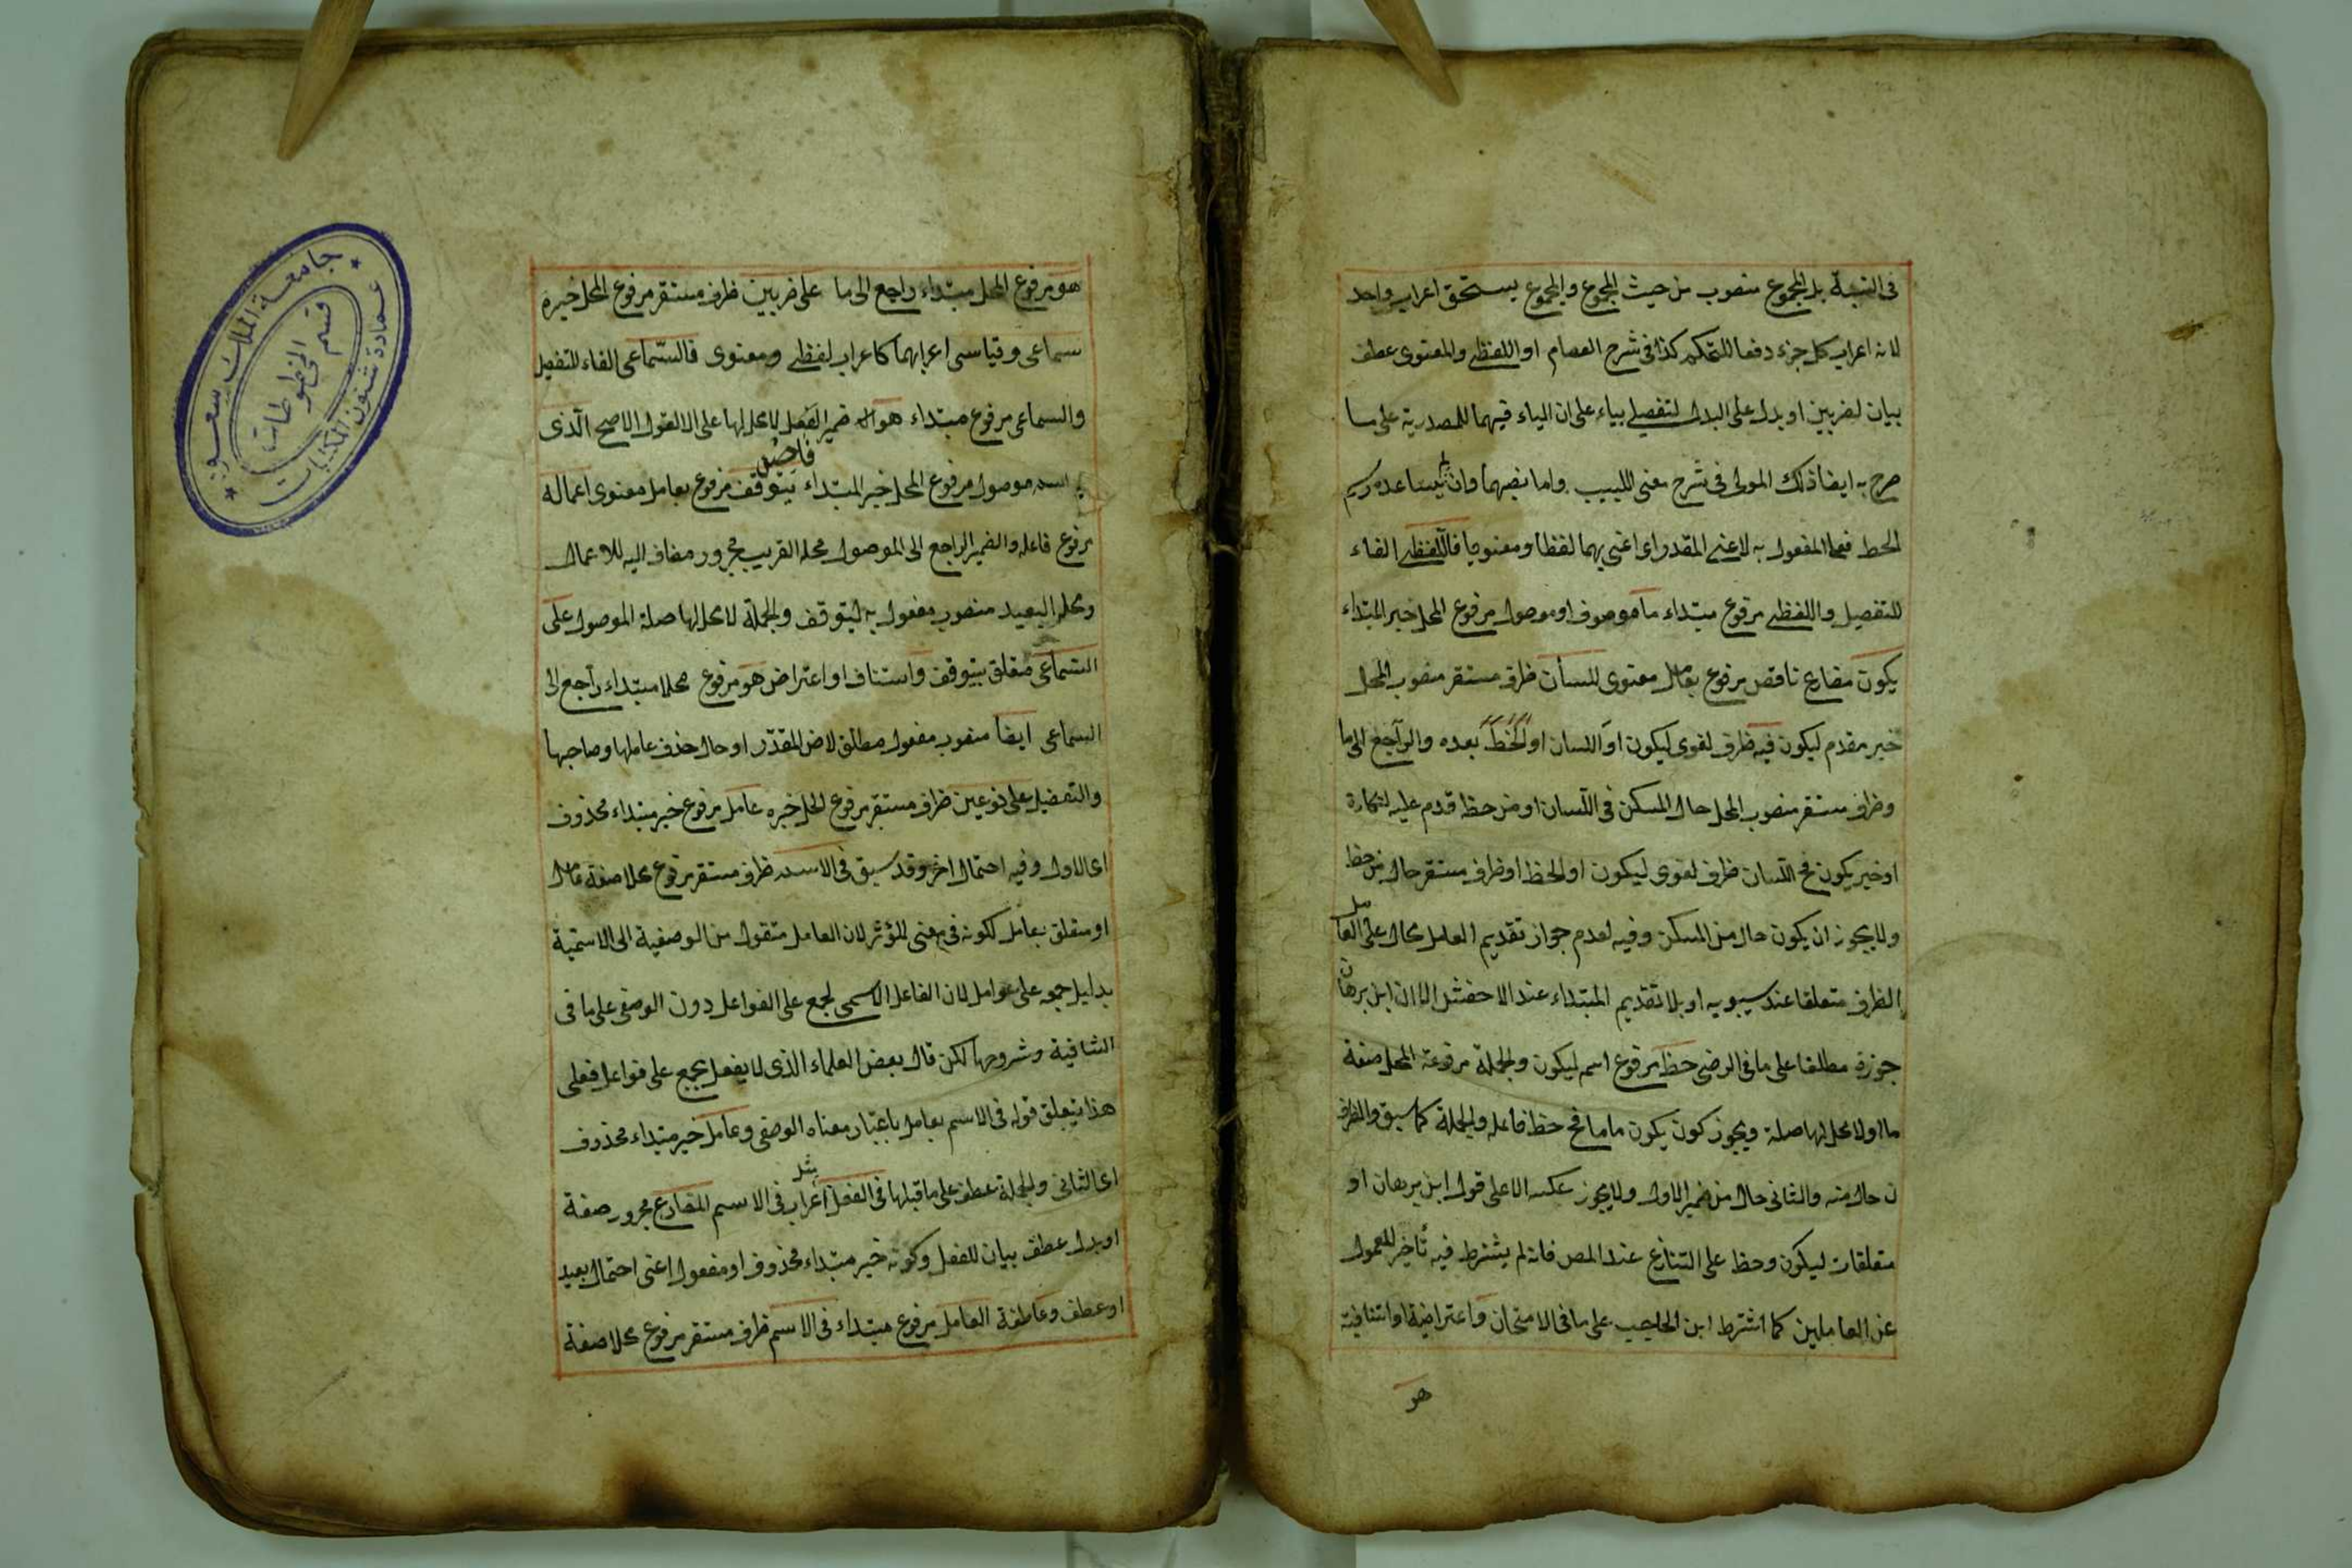 فى النسبة بل المجموع منصوب من حيث المجموع والمجموع يستحق اعراب واحد
لانه اعراب كل جزء دفعا للتحكم كذا فى شرح العصام او اللفظى والمعنوى عطف
بيان لضربين او بدل على البدل لتفصيلى بناء على ان الياء فيهما للمصدرية على ما
صرح به ايضا ذلك المولى فى شرح مغنى اللبيب واما نصبهما وان لم يساعده رسم
الخط فعلى المفعول به لاعنى المقدر اى اعنى بهما لفظيا ومعنويا فاللفظى الفاء
للتفصيل واللفظى مرفوع مبتداء ما موصوف او موصول مرفوع المحل خبر المبتداء
يكون مضارع ناقص مرفوع بعامل معنوى للسان ظرف مستقر منصوب المحل
خبر مقدم ليكون فيه ظرف لغوى ليكون او اللسان او لحظ بعده والراجع الى ما
وظرف مستقر منصوب المحل حال المسكن فى اللسان او من حظ قدم عليه لنكارة
او خبر يكون فح اللسان ظرف لغوى ليكون او لحظ او ظرف مستقر حال من حظ
ولا يجوز ان يكون حال من المسكن وفيه لعدم جواز تقديم العامل كال على العامل
الظرف متعلقا عند سيبويه او بلا تقديم المبتداء عند الاخفش الا ان ابن برهان
جوزه مطلقا على ما فى الرضى حظ مرفوع اسم ليكون والجملة مرفوعة المحل صفة
ما او لا محل لها صلة ويجوز كون يكون تاما فح حظ فاعله والجملة كما سبق والظرف
ن حال منه والثانى حال من ضمير الاول ولا يجوز عكسه الا على قول ابن برهان او
متعلقات ليكون وحظ على التنازع عند المصـ فانه لم يشترط فيه تأخير المعمول
عن العاملين كما اشترط ابن الحاجب على ما فى الامتحان واعتراضية او استئنافية
هو
هو مرفوع المحل مبتداء راجع الى ما على ضربين ظرف مستقر مرفوع المحل خبره
سماعى وقياسى اعرابهما كاعراب لفظى ومعنوى فالسماعى الفاء للتفصيل
والسماعى مرفوع مبتداء هو ضمير الفصل لا محل لها على القول الاصح الذى
اسم موصول مرفوع المحل خبر المبتداء يتوقف مرفوع بعامل معنوى اعماله
مرفوع فاعله والضمير الراجع الى الموصول محله القريب مجرور مضاف اليه للاعمال
ومحله البعيد منصوب مفعول به ليتوقف والجملة لا محل لها صلة الموصول على
السماعى متعلق بيتوقف واستناف او اعتراض هو مرفوع محلا مبتداء راجع الى
السماعى ايضا منصوب مفعول مطلق لاض المقدر او حال حذف عاملها وصاحبها
والتفصيل على نوعين ظرف مستقر مرفوع المحل خبره عامل مرفوع خبر مبتداء محذوف
اى الاول وفيه احتمال اخر وقد سبق فى الاسم ظرف مستقر مرفوع محلا صفة عامل
او متعلق بعامل لكونه فى معنى المؤثر لان العامل منقول من الوصفية الى الاسمية
بدليل جمعه على عوامل لان الفاعل الاسمى يجمع على الفواعل دون الوصفى على ما فى
الشافية وشروحها لكن قال بعض العلماء الذى لا يفعل يجمع على فواعل فعلى
هذا يتعلق قوله فى الاسم بعامل باعتبار معناه الوصفى وعامل خبر مبتداء محذوف
اى الثانى والجملة عطف على ما قبلها فى الفعل اعراب فى الاسم المضارع مجرور صفة
او بدل عطف بيان للفعل وكونه خبر مبتداء محذوف او مفعول اعنى احتمال بعيد
او عطف وعاطفة العامل مرفوع مبتداء فى الاسم ظرف مستقر مرفوع محلا صفة
جامعة الملك سعود
عمادة شئون المكتبات
قسم المخطوطات